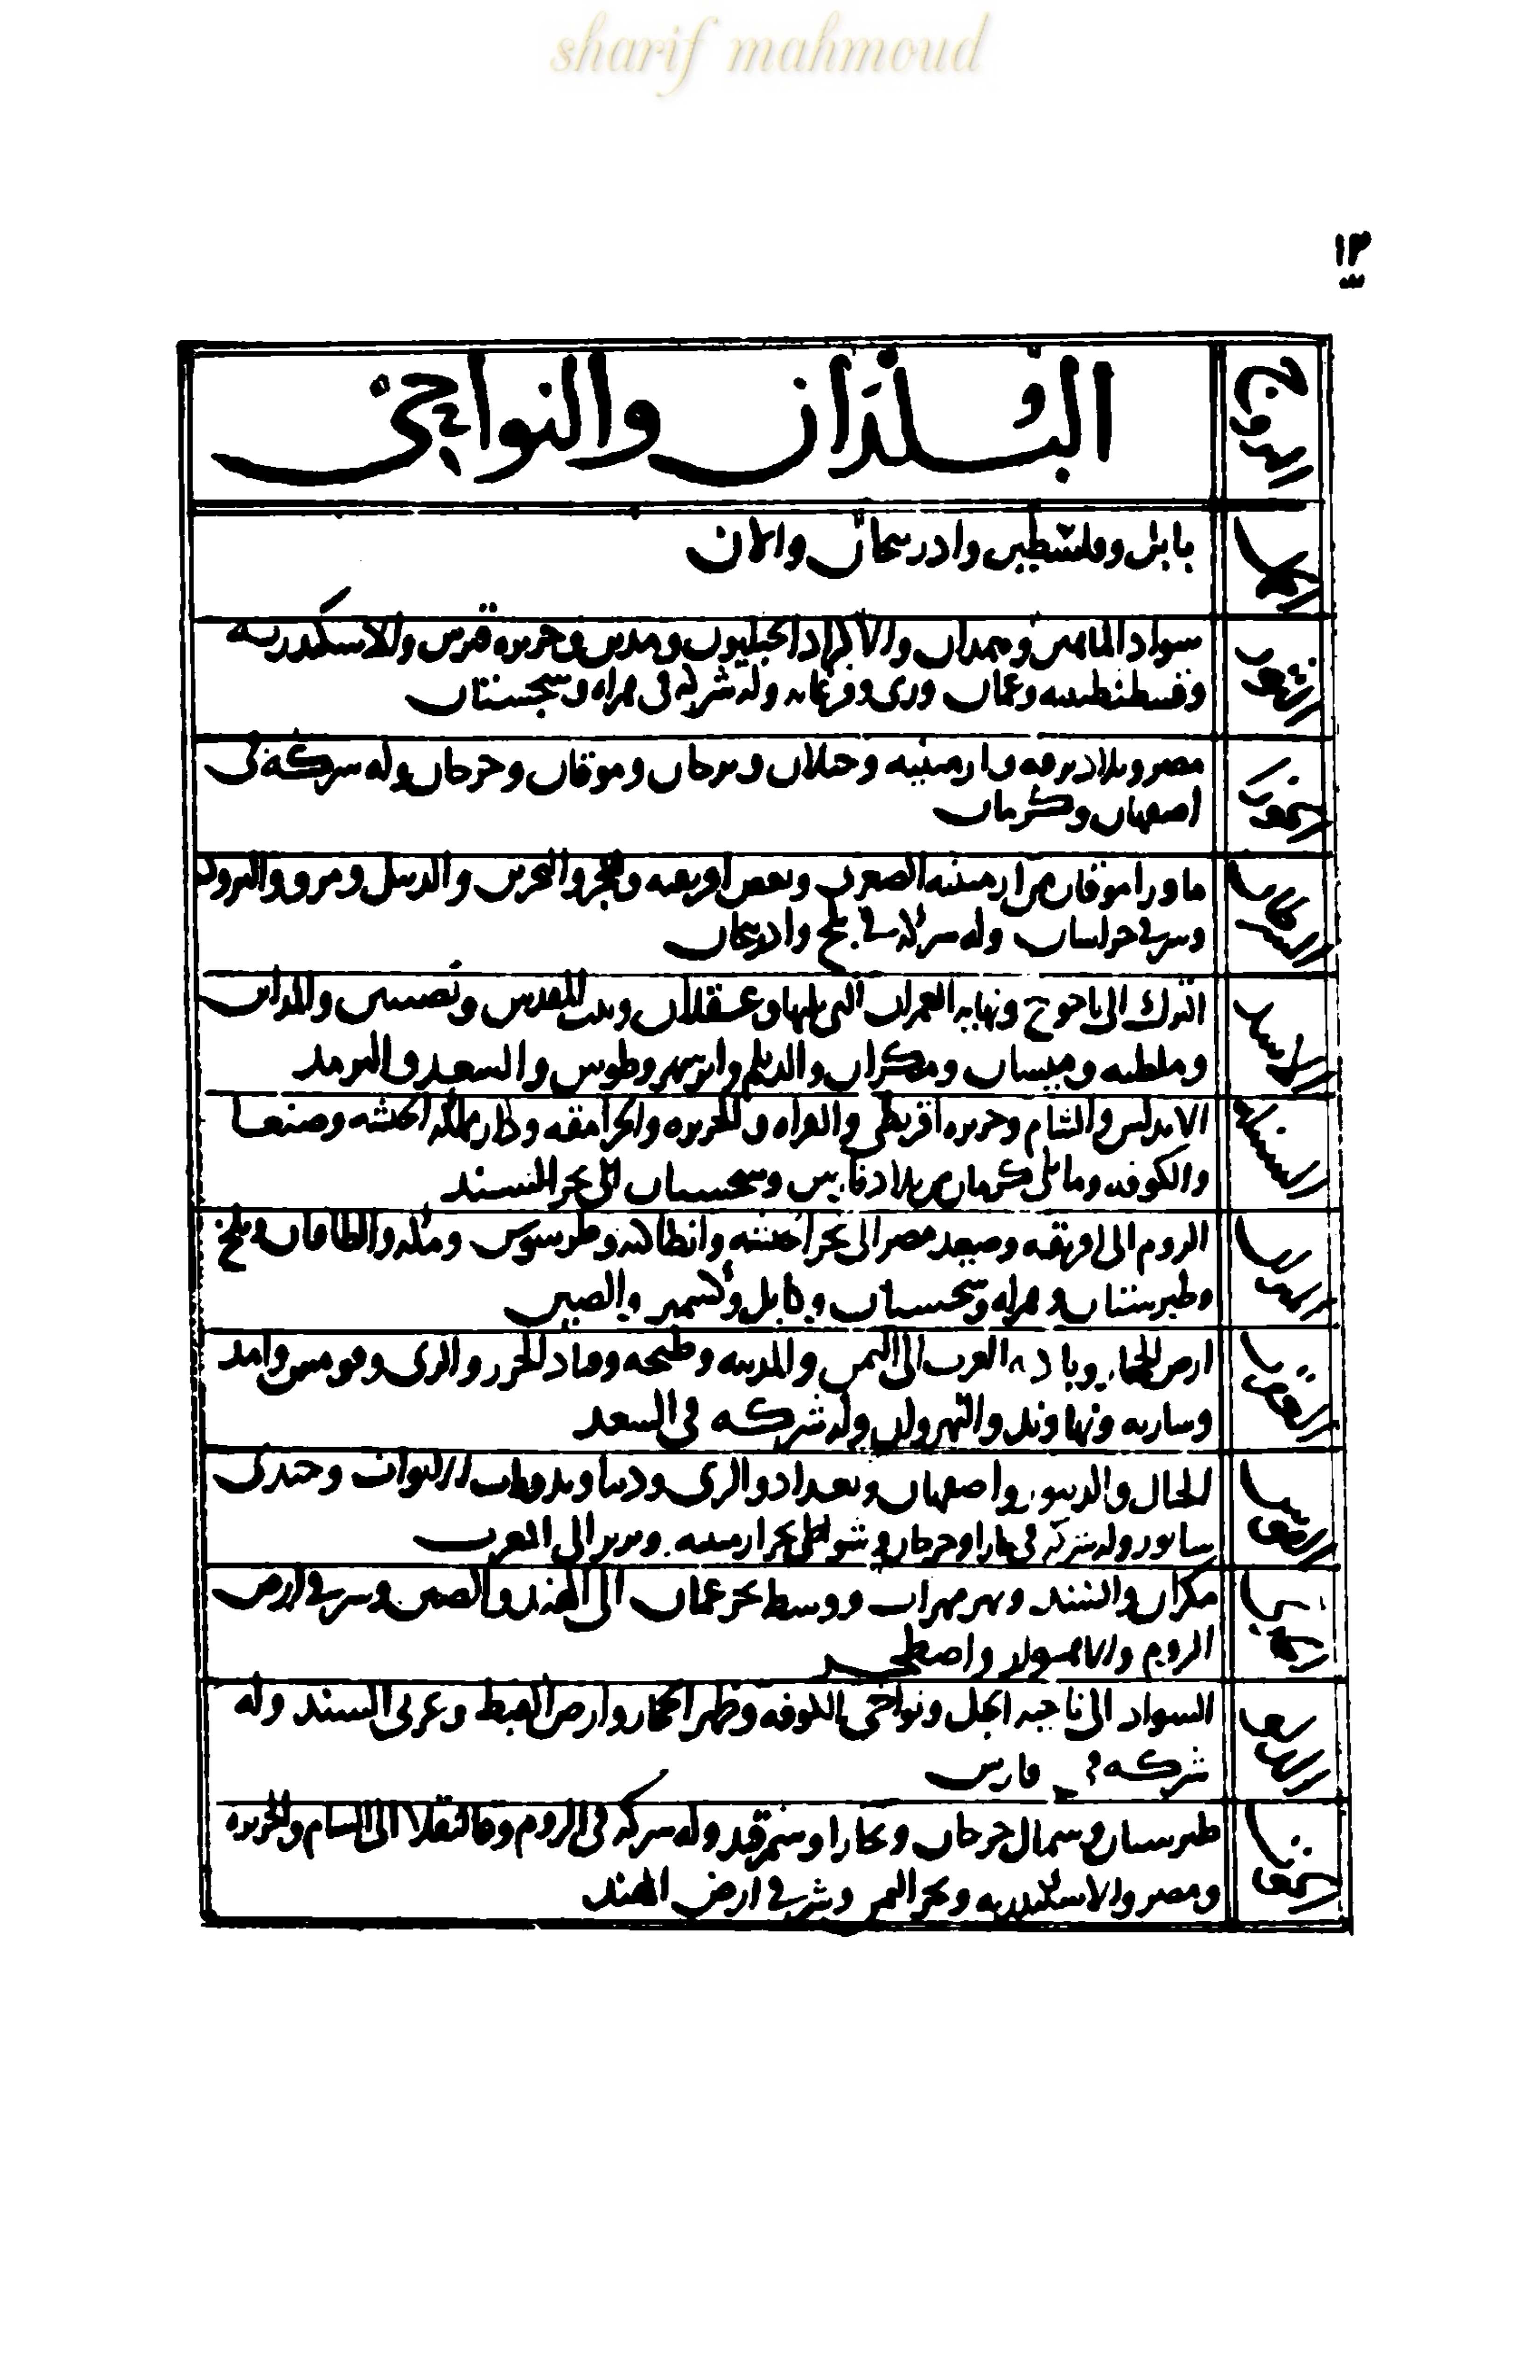 sharif mahmoud
١٣
البروج
البلدان والنواحي
الحمل
بابل وفلسطين وادربيجان والان
الثور
سواد الماهين وهمدان والاكراد الجبليون ومدين وجزيره قبرس والاسكندريه
وقسطنطينيه وعمان ورى وفرغانه وله شركه فى هراه وسجستان
الجوزا
مصر وبلاد برقه وارمينيه وجيلان وبرجان وموقان وجرجان وله شركة فى
اصفهان وكرمان
السرطان
ماورا موقان من ارمينيه الصغرى وبعض افريقيه وهجر والبحرين والديبل ومرو
وشرقي خراسان وله شركه في بلخ وادربيجان
الاسد
الترك الى ياجوج ونهايه العمران التي يليها وعسقلان وبيت المقدس ونصيبين والمداين
وملطيه وميسان ومكران والديلم وابرشهر وطوس والسغد والترمذ
السنبله
الاندلس والشام وجزيره اقريطى والفراه والجزيره والجرامقه ودار مملكه الحبشه وصنعا
والكوفه وما يلى كرمان من بلاد فارس وسجستان الى بحر السند
الميزان
الروم الى افريقيه وصعيد مصر الى بحر الحبشه وانطاكيه وطرسوس ومكه والطالقان وبلخ
وطبرستان وهراه وسجستان وكابل وكشمير والصين
العقرب
ارض الحجاز وباديه العرب الى اليمن والمدينه وطنجه وبلاد الخزر والرى وقومس وامد
وساريه ونهاوند والنهروان وله شركه فى السغد
القوس
الجبال والدينور واصفهان وبغداد والرى ودنباوند وباب الابواب وجندى
سابور وله شركه فى بخارا وجرجان وشواطى بحر ارمينيه وبربر الى المغرب
الجدي
مكران والسند ونهر مهران ووسط بحر عمان الى الهند والصين وشرقي ارض
الروم والاهواز واصطخر
الدلو
السواد الى ناحيه الجبل ونواحى الكوفه وظهر الحجاز وارض القبط وغربى السند وله
شركه في فارس
الحوت
طبرستان وشمال جرجان وبخارا وسمرقند وله شركه فى الروم وقاليقلا الى الشام والجزيره
ومصر والاسكندريه وبحر اليمن وشرقي ارض الهند